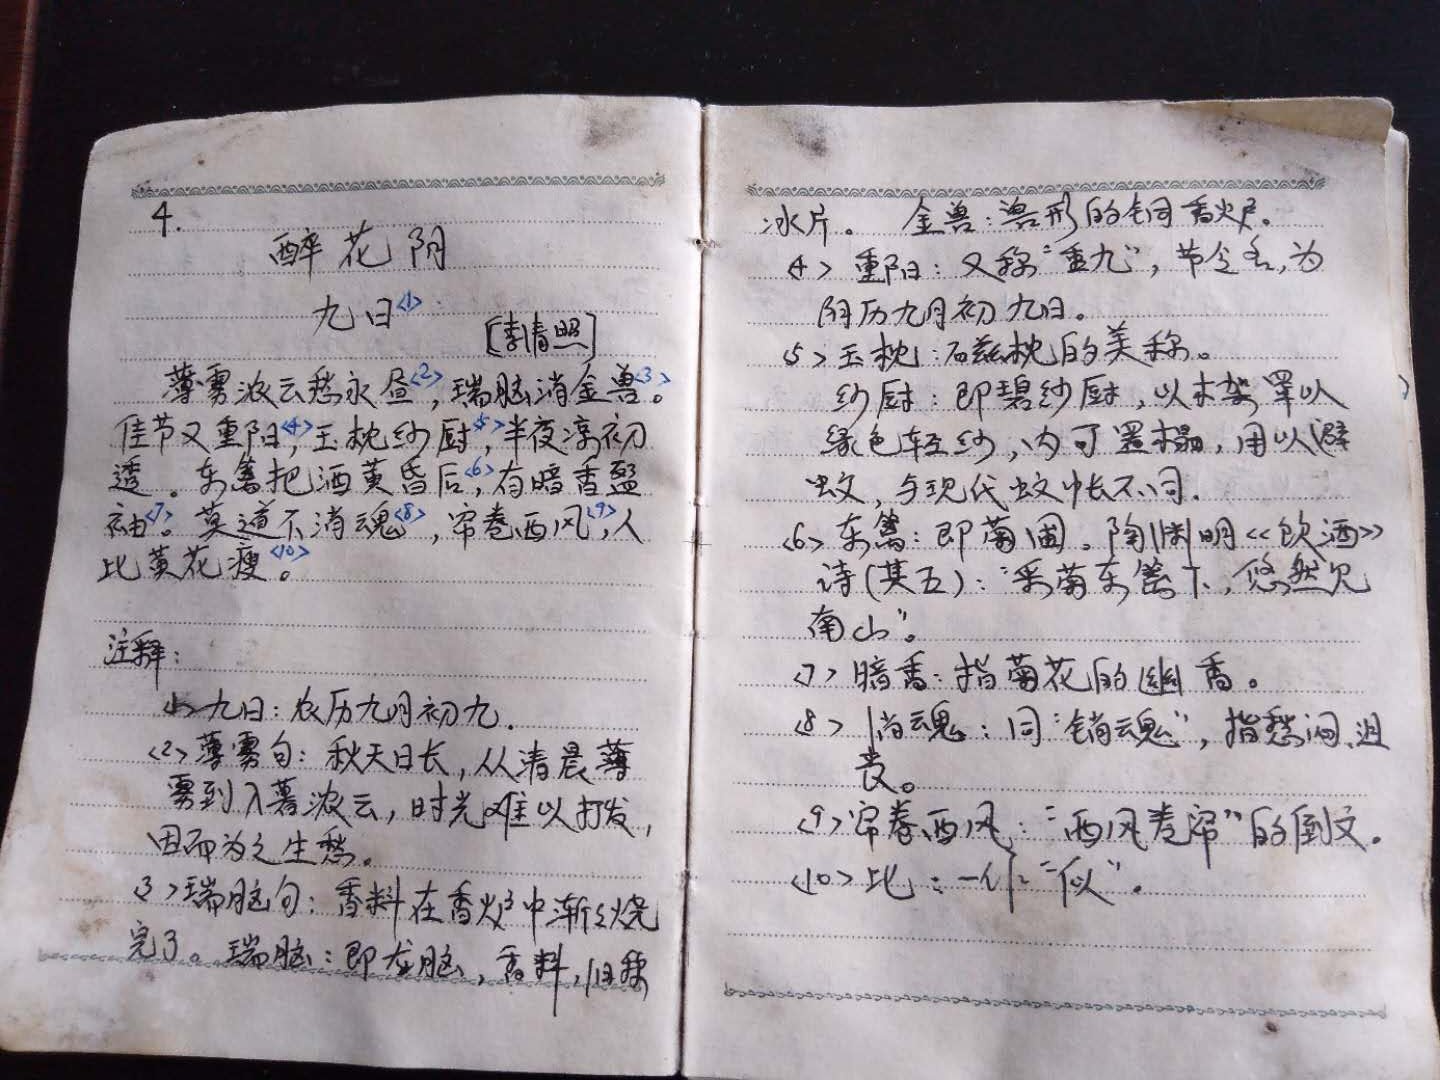 4.
醉花阴
九日<1>
[李清照]
薄雾浓云愁永昼<2>，瑞脑消金兽<3>。
佳节又重阳<4>，玉枕纱厨<5>，半夜凉初
透。东篱把酒黄昏后<6>，有暗香盈
袖<7>。莫道不消魂<8>，帘卷西风<9>，人
比黄花瘦<10>。
注释：
<1>九日：农历九月初九.
<2>薄雾句：秋天日长，从清晨薄
雾到入暮浓云，时光难以打发，
因而为之生愁。
<3>瑞脑句：香料在香炉中渐渐烧
完了。瑞脑：即龙脑，香料，旧称
冰片。 金兽：兽形的铜香炉。
<4>重阳：又称“重九”，节令名，为
阴历九月初九日。
<5>玉枕：石兹枕的美称。
纱厨：即碧纱厨，以木架罩以
绿色轻纱，内可置榻，用以避
蚊，与现代蚊帐不同.
<6>东篱：即菊圃。陶渊明《饮酒》
诗(其五)：“采菊东篱下，悠然见
南山”。
<7>暗香：指菊花的幽香。
<8>消魂：同“销魂”，指愁闷、沮
丧。
<9>帘卷西风：“西风卷帘”的倒文。
<10>比：一作“似”.